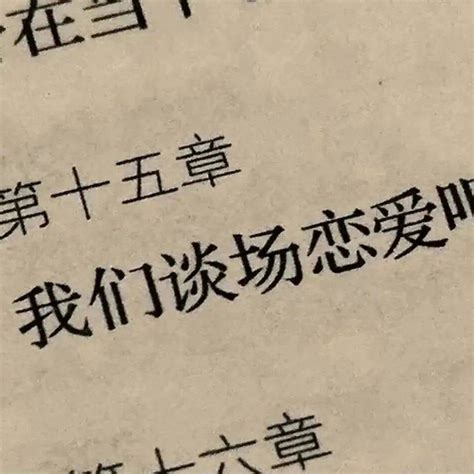 在当下
第十五章
我们谈场恋爱吧
第十六章